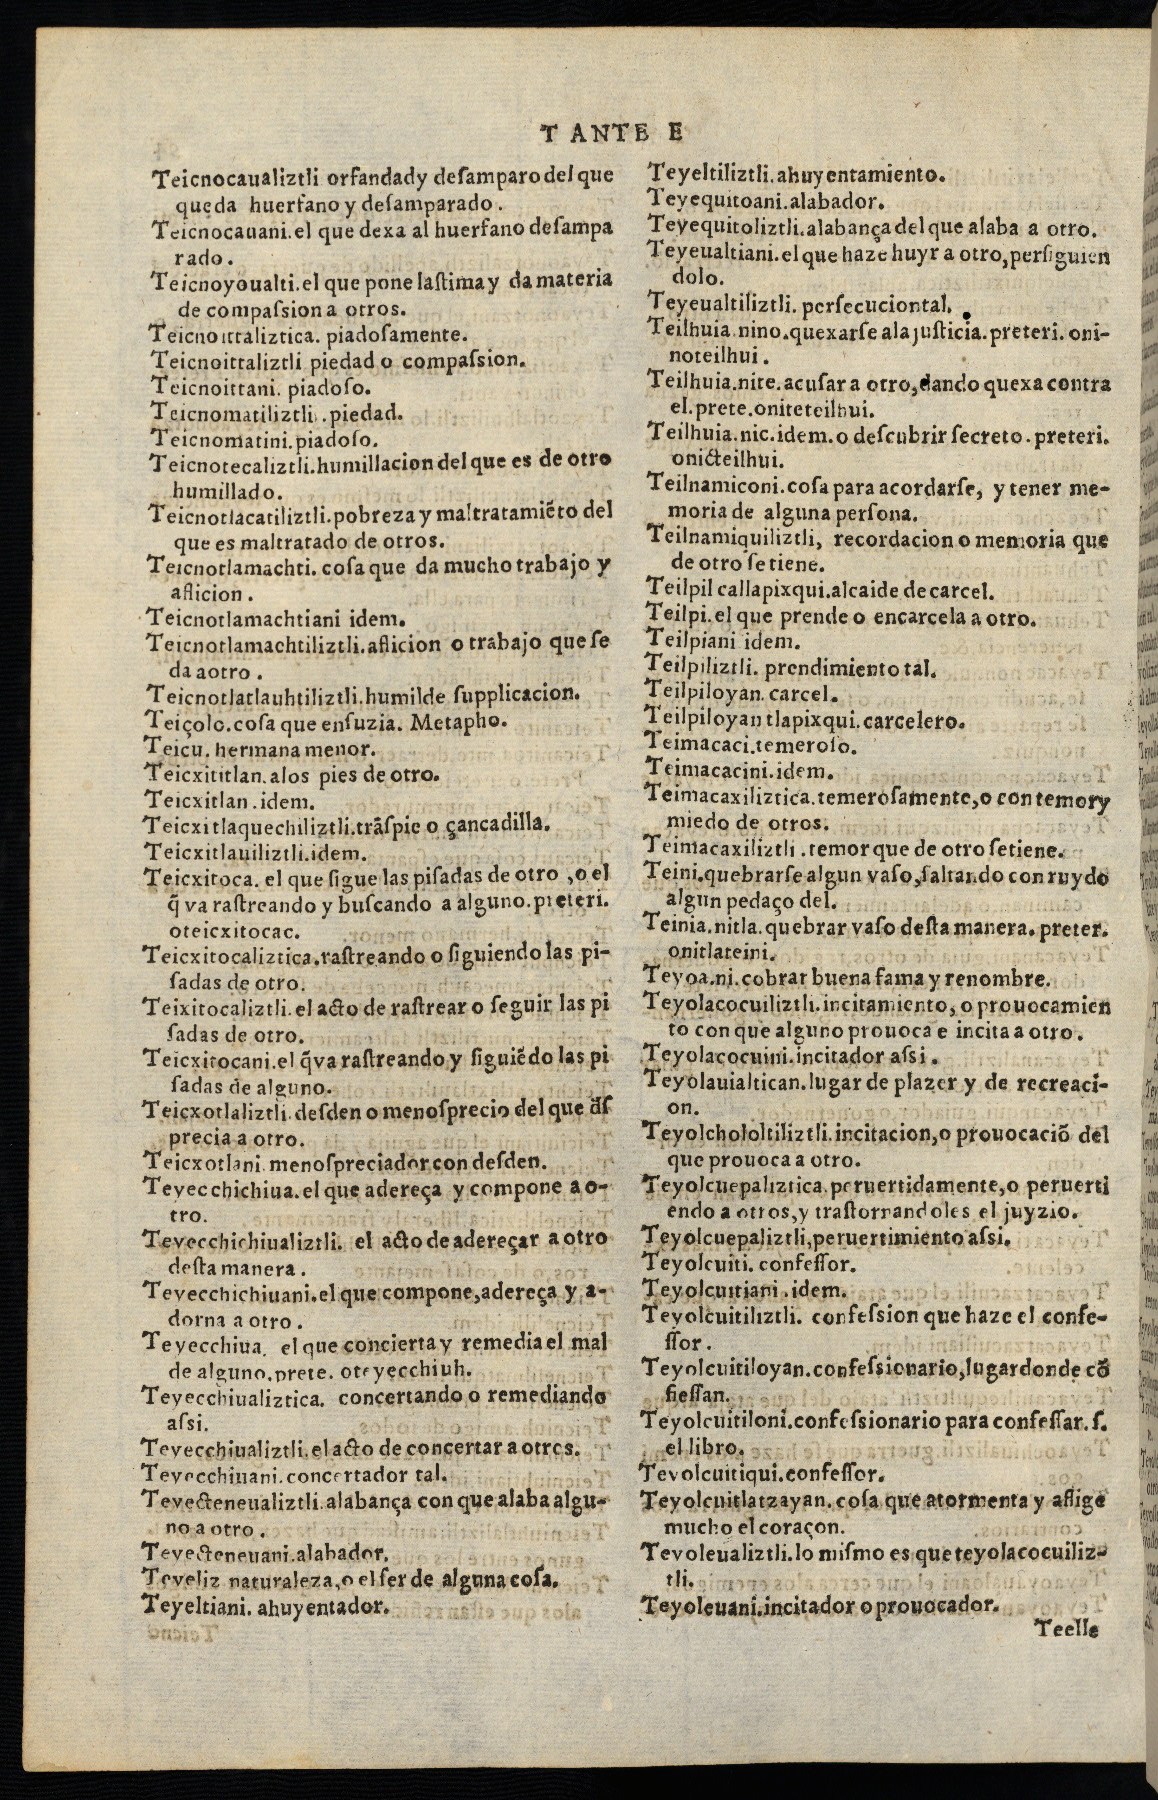 T ANTE E
Teicnocaualiztli orfandad y desamparo del que
queda huerfano y desamparado.
Teicnocauani. el que dexa al huerfano desampa
rado.
Teicnoyoualti. el que pone lastima y da materia
de compassion a otros.
Teicnoittaliztica. piadosamente.
Teicnoittaliztli piedad o compassion.
Teicnoittani. piadoso.
Teicnomatiliztli. piedad.
Teicnomatini. piadoso.
Teicnotecaliztli. humillacion del que es de otro
humillado.
Teicnotlacatiliztli. pobreza y maltratamiẽto del
que es maltratado de otros.
Teicnotlamachti. cosa que da mucho trabajo y
aflicion.
Teicnotlamachtiani idem.
Teicnotlamachtiliztli. aflicion o trabajo que se
da a otro.
Teicnotlatlauhtiliztli. humilde supplicacion.
Teiçolo. cosa que ensuzia. Metapho.
Teicu. hermana menor.
Teicxititlan. alos pies de otro.
Teicxitlan. idem.
Teicxitlaquechiliztli. trãspie o çancadilla.
Teicxitlauiliztli. idem.
Teicxitoca. el que sigue las pisadas de otro, o el
q̃ va rastreando y buscando a alguno. preteri.
oteicxitocac.
Teicxitocaliztica. rastreando o siguiendo las pi-
sadas de otro.
Teixitocaliztli. el acto de rastrear o seguir las pi
sadas de otro.
Teicxitocani. el q̃ va rastreando y siguiẽdo las pi
sadas de alguno.
Teicxotlaliztli. desden o menosprecio del que ds̃
precia a otro.
Teicxotlani. menospreciador con desden.
Teyecchichiua. el que adereça y compone a o-
tro.
Teyecchichiualiztli. el acto de adereçar a otro
desta manera.
Teyecchichiuani. el que compone, adereça y a-
dorna a otro.
Teyecchiua. el que concierta y remedia el mal
de alguno. prete. oteyecchiuh.
Teyecchiualiztica. concertando o remediando
assi.
Teyecchiualiztli. el acto de concertar a otros.
Teyecchiuani. concertador tal.
Teyecteneualiztli. alabança con que alaba algu-
no a otro.
Teyecteneuani. alabador.
Teyeliz naturaleza, o el ser de alguna cosa.
Teyeltiani. ahuyentador.
Teyeltiliztli. ahuyentamiento.
Teyequitoani. alabador.
Teyequitoliztli. alabança del que alaba a otro.
Teyeualtiani. el que haze huyr a otro, persiguien
dolo.
Teyeualtiliztli. persecucion tal.
Teilhuia nino. quexarse ala justicia. preteri. oni-
noteilhui.
Teilhuia. nite. acusar a otro, dando quexa contra
el. prete. oniteteilhui.
Teilhuia. nic. idem. o descubrir secreto. preteri.
onicteilhui.
Teilnamiconi. cosa para acordarse, y tener me-
moria de alguna persona.
Teilnamiquiliztli, recordacion o memoria que
de otro se tiene.
Teilpil callapixqui. alcaide de carcel.
Teilpi. el que prende o encarcela a otro.
Teilpiani idem.
Teilpiliztli. prendimiento tal.
Teilpiloyan. carcel.
Teilpiloyan tlapixqui. carcelero.
Teimacaci. temeroso.
Teimacacini. idem.
Teimacaxiliztica. temerosamente, o con temor y
miedo de otros.
Teimacaxiliztli. temor que de otro se tiene.
Teini. quebrarse algun vaso, saltando con ruydo
algun pedaço del.
Teinia. nitla. quebrar vaso desta manera. preter.
onitlateini.
Teyoa. ni. cobrar buena fama y renombre.
Teyolacocuiliztli. incitamiento, o prouocamien
to con que alguno prouoca e incita a otro.
Teyolacocuini. incitador assi.
Teyolauialtican. lugar de plazer y de recreaci-
on.
Teyolchololtiliztli. incitacion, o prouocaciõ del
que prouoca a otro.
Teyolcuepaliztica. peruertidamente, o peruerti
endo a otros, y trastornandoles el juyzio.
Teyolcuepaliztli, peruertimiento assi.
Teyolcuiti. confessor.
Teyolcuitiani. idem.
Teyolcuitiliztli. confession que haze el confe-
ssor.
Teyolcuitiloyan. confessionario, lugar donde cõ
fiessan.
Teyolcuitiloni. confessionario para confessar. s.
el libro.
Teyolcuitiqui. confessor.
Teyolcuitlatzayan. cosa que atormenta y aflige
mucho el coraçon.
Teyoleualiztli. lo mismo es que teyolacocuiliz-
tli.
Teyoleuani. incitador o prouocador.
Teelle